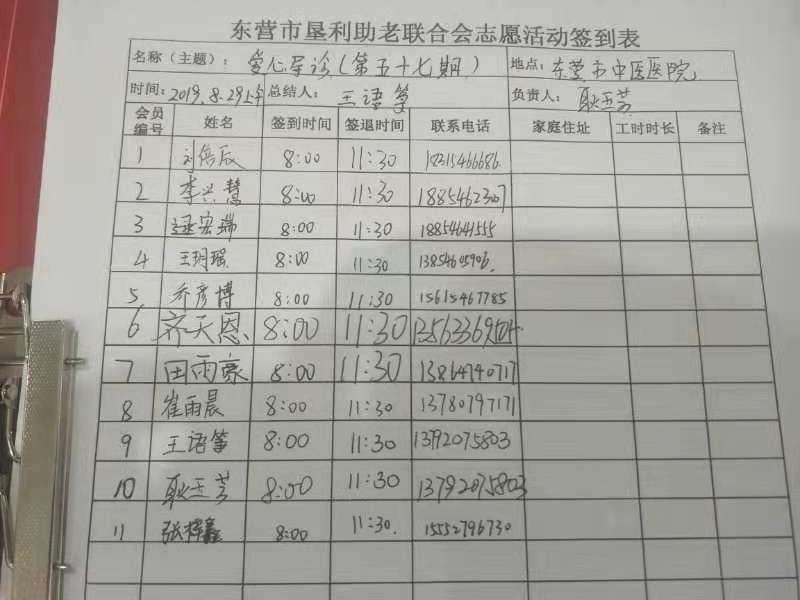 东营市垦利助老联合会志愿活动签到表
名称（主题）： 爱心导诊（第五十七期） 地点： 东营市中医医院
时间： 2019.8.29上午 总结人： 王语筝 负责人： 耿玉芳
会员编号 姓名 签到时间 签退时间 联系电话 家庭住址 工时时长 备注
1 刘倍辰 8:00 11:30
2 李兴慧 8:00 11:30 18854623107
3 宏瑞 8:00 11:30 18854641555
4 王玥瑶 8:00 11:30
5 乔彦博 8:00 11:30 15615467785
6 齐天恩 8:00 11:30
7 田雨豪 8:00 11:30 13864740717
8 崔雨晨 8:00 11:30 13780797171
9 王语筝 8:00 11:30 13792075803
10 耿玉芳 8:00 11:30 13792075803
11 张梓鑫 8:00 11:30. 15552796730